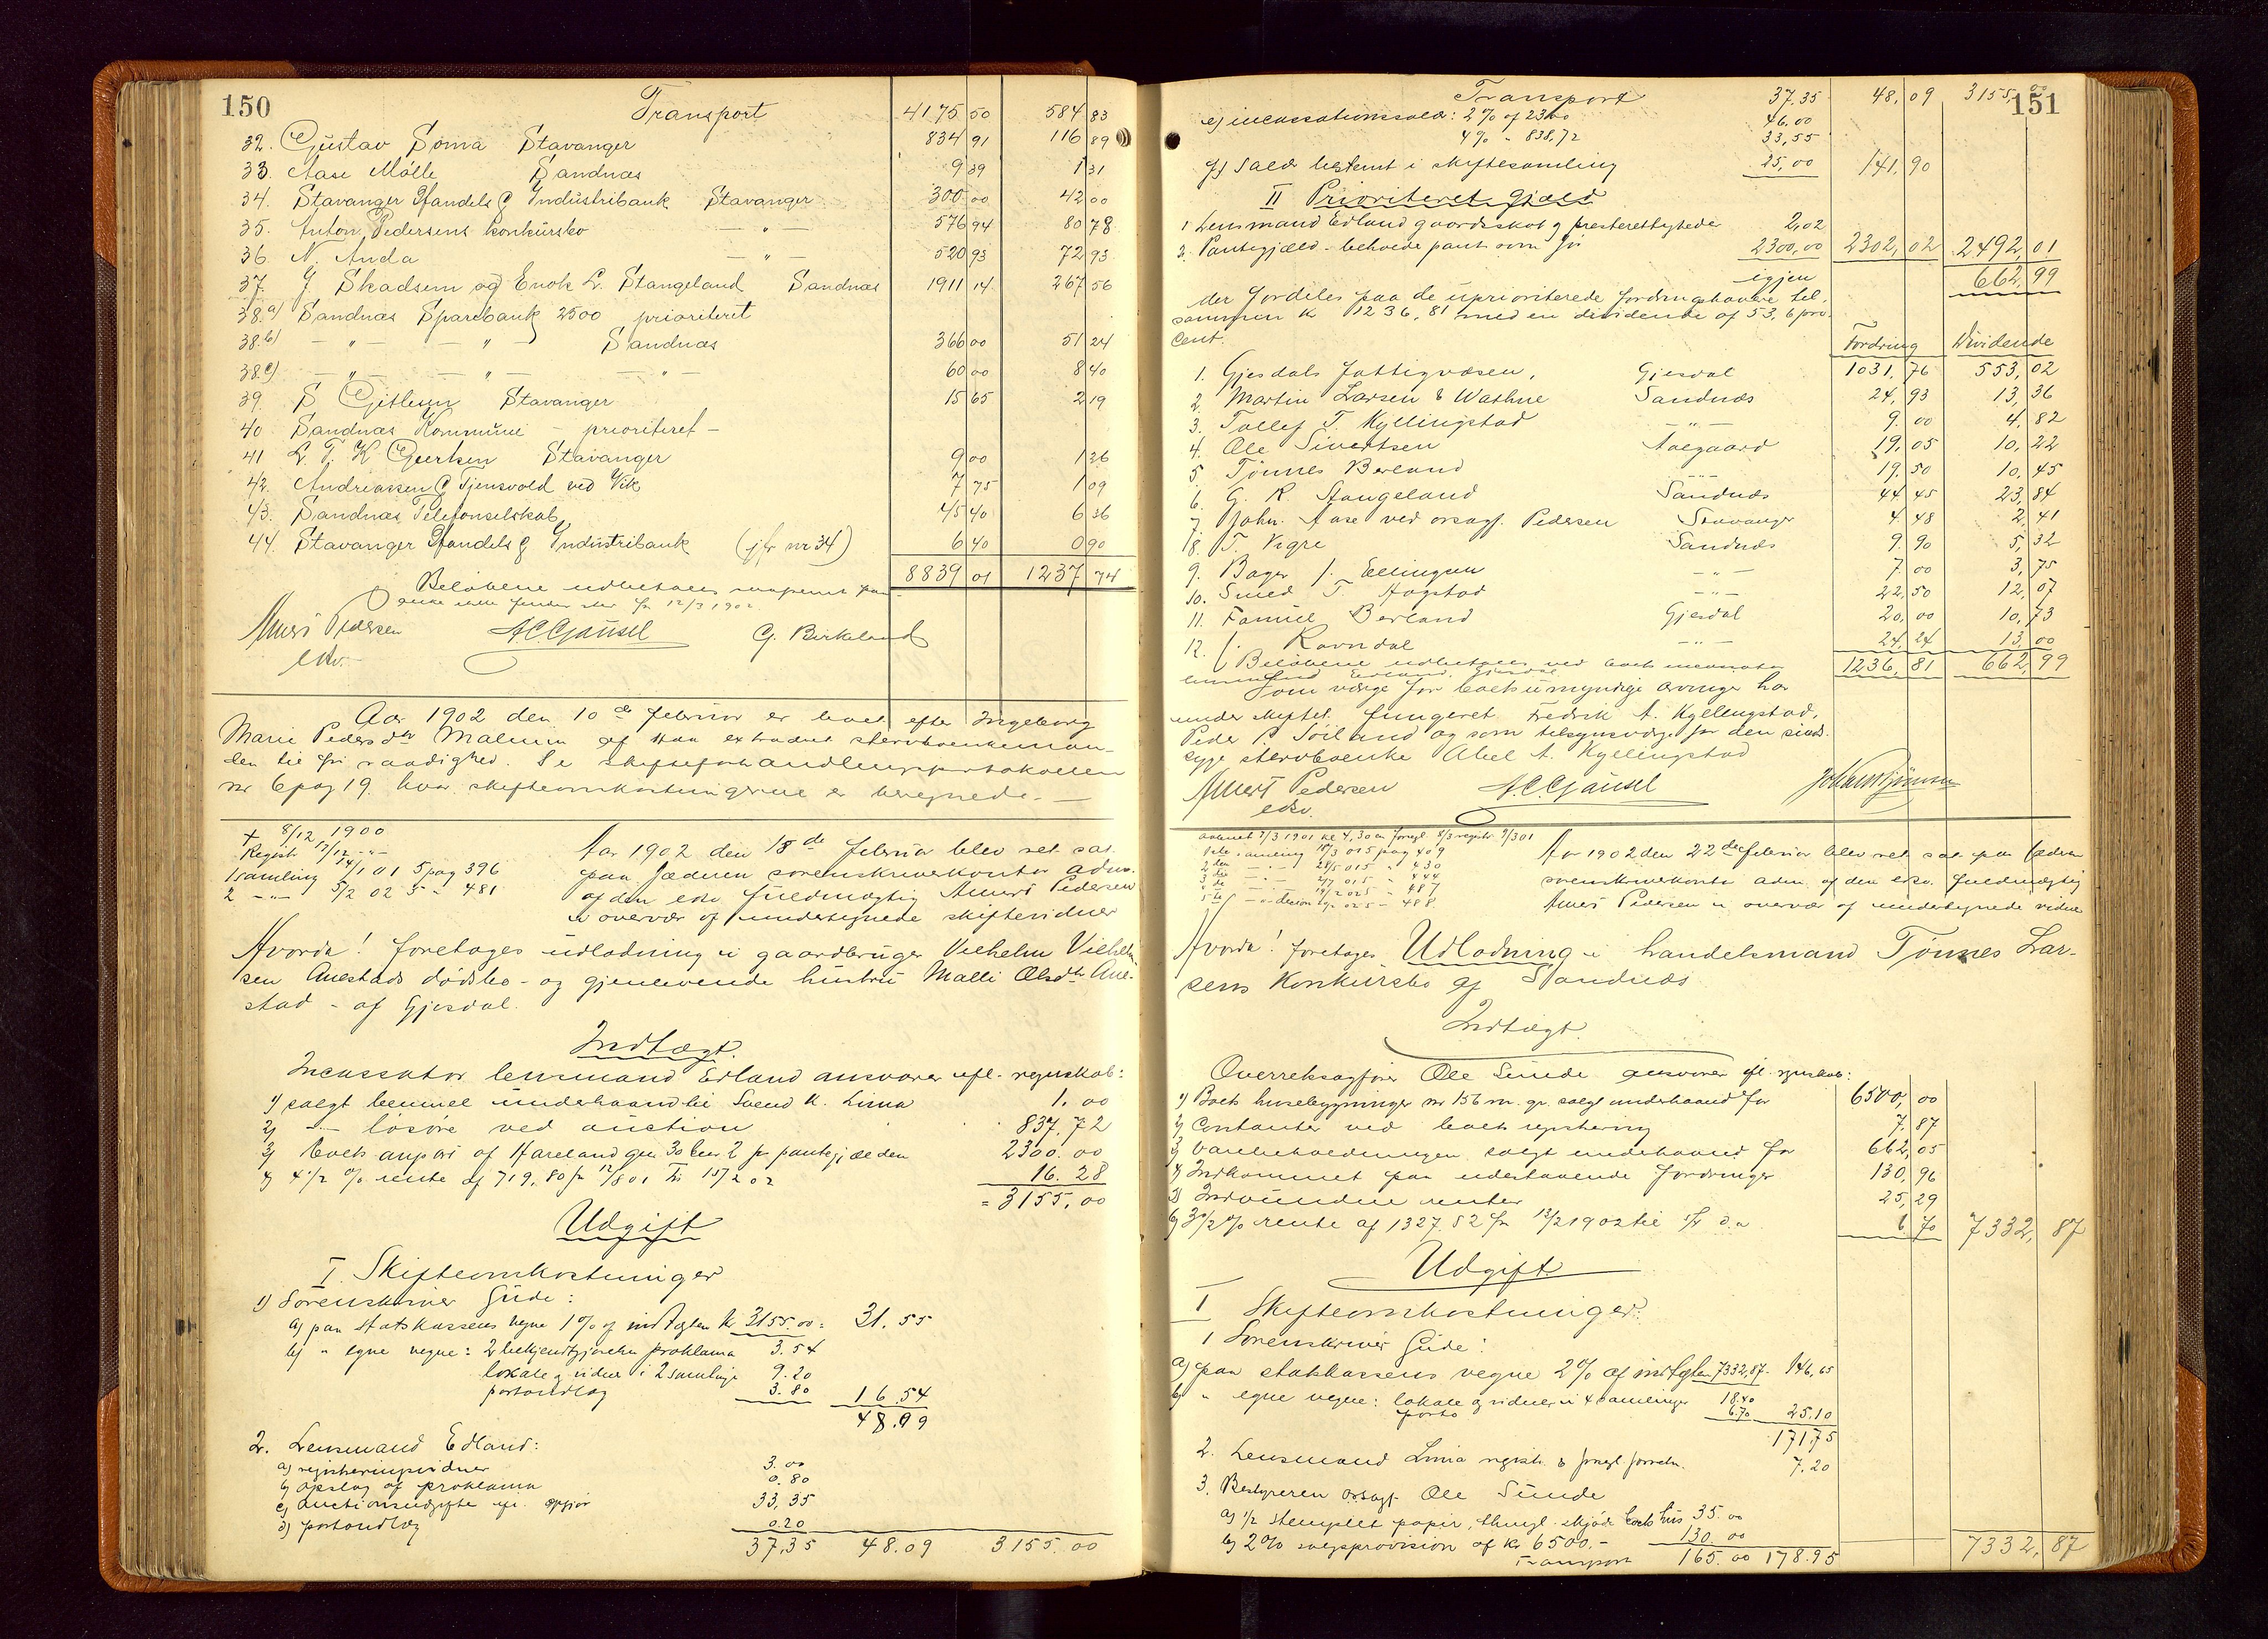 150
Transport 4175 50 584 83
32. Gustav Soma Stavanger 834 91 116 89
33. Aase Mölle Sandnæs 9 39 1 31
34. Stavanger Handels & Industribank Stavanger 300 00 42 00
35. Anton Pedersens konkursbo — " — 576 94 80 78
36 N. Anda — " — 520 93 72 93
37. J. Skadsem og Enok L. Stangeland Sandnæs 1911 14 267 56
38.a) Sandnæs Sparebank 2500 prioriteret
38.b) — " — — " — Sandnæs 366 00 51 24
38.c) — " — — " — — " — 60 00 8 40
39. S Gitlesen Stavanger 15 65 2 19
40. Sandnæs Kommune – prioriteret –
41 L. T. K Geertsen Stavanger 9 00 1 26
42. Andreassen & Tjensvold ved Vik 7 75 1 09
43. Sandnæs Telefonselskab 45 40 6 36
44. Stavanger Handels & Industribank (jfr nr 34) 6 40 0 90
8839 01 1237 74
Beløbene udbetales
12/3 1902.
Pedersen A.C. Gausel G. Birkeland
edsv.
Aar 1902 den 10de februar er boet efter Ingeborg
Marie Pedersdtr Malmin af Haa extraderet stervboenkeman-
den til fri raadighed. Se skifteforhandlingsprotokollen
nr 6 pag 19. hvor skifteomkostningerne er beregnede. —
+ 8/12 1900
Registr 12/12 - "
1 samling 14/1 01 5 pag 396
2 — " — 5/2 02 5 - 481
Aar 1902 den 15de februar blev ret sat
paa Jæderen sorenskriverkontor adm.
af den edsv. fuldmægtig Pedersen
i overvær af undertegnede skiftevidner
Hvorda! foretoges udlodning i gaardbruger Vilhelm Vilhelm-
sen Auestads dødsbo - og gjenlevende hustru Malli Olsdtr Aue-
stad - af Gjesdal.
Indtægt.
Incassator lensmand Edland ansvarer efl. regnskab:
1) solgt underhaanden til Svend K. Lima 1. 00
2) — " — løsøre ved auction 837. 72
3) boets anpart af Hareland gnr 30 bnr 2 for pantegjælden 2300. 00
4) 4 1/2 % rente af 719,80 fr 12/8 01 til 15/2 02 16. 28
= 3155,00
Udgift
I. Skifteomkostninger
1) Sorenskriver Gude:
a) paa statskassens vegne 1% af indtægten kr 3155.00 = 31. 55
b) " egne vegne: 2 bekjendtgjørelser proklama 3. 54
lokale og vidner i 2 samlinger 9.20
portoudlæg 3.80 16.54
48.09
2. Lensmand Edland:
a) registeringsvidner 3. 00
b) opslag af proklama 0. 80
c) auctionsudgifter efl. opgjør 33, 35
d) portoudlæg 0.20
37,35 48.09 3155. 00
151
Transport 37.35 48,09 3155,00
e) incassationssalær: 2% af 2300 46.00
4% - 838,72 33,55
f) Salær bestemt i skiftesamling 25,00 141,90
II Prioriteret gjæld
1 Lensmand Edland gaardsskat og presterettigheder 2,02
2. Pantegjæld - beholder pant som før 2300,00 2302,02 2492,01
igjen 662,99
der fordeles paa de uprioriterede fordringshavere til-
sammen k 1236,81 med en dividende af 53,6 pro-
cent. Fordring Dividende
1. Gjesdals fattigvæsen, Gjesdal 1031,76 553,02
2. Martin Larsen & Wathne Sandnæs 24,93 13,36
3. Tollef T. Kyllingstad — " — 9. 00 4,82
4. Ole Sivertsen Aalgaard 19,05 10,22
5. Tønnes Berland — " — 19.50 10,45
6. G. R. Stangeland Sandnæs 44,45 23,84
7. Aase ved orsagf. Pedersen Stavanger 4,48 2,41
8. T. Vigre Sandnæs 9. 90 5,32
9. Bager J. Ellingsen — " — 7.00 3,75
10. Smed T Hogstad — " — 22,50 12,07
11. Samuel Berland Gjesdal 20,00 10,73
12. J. Ravndal — " — 24,24 13,00
1236,81 662,99
Beløbene udbetales ved boets incassator
lensmand Edland, Gjesdal
Som værge for boets umyndige arvinger har
under skiftet fungeret Fredrik A. Kyllingstad,
Peder P. Soiland og som tilsynsværge for den sinds-
syge stervboenke Abel A. Kyllingstad
Pedersen A.C. Gausel
edsv.
7/3 1901 kl 4,30 em forsegl. 8/3 registr 9/3 01
1ste samling 18/3 01 5 pag 409
2 den — " — 5 - 430
3 die — " — 5 - 444
4 de — " — 14/2 02 5 - 487
5 te — " — 02 5 - 488
Aar 1902 den 22de februar blev ret sat paa Jæderen
sorenskriverkontor adm. af den edsv. fuldmægtig
Pedersen i overvær af undertegnede vidner
Hvorda! foretoges Udlodning i handelsmand Tønnes Lar-
sens Konkursbo af Sandnæs
Indtægt.
Overretssagfører Ole Sunde ansvarer efl. regnskab:
1) Boets husebygninger nr 156 m. gr. solgt underhaand for 6500,00
2) Contanter ved boets registering 7,87
3) Varebeholdningen solgt underhaand for 662,05
4) Indkommet paa udestaaende fordringer 130,96
5) Indvundne renter 25,29
6) 3 1/2 % rente af 1327.52 fra 13/2 1902 til d.a. 6 70 7332, 87
Udgift
I Skifteomkostninger:
1 Sorenskriver Gude:
a) paa statskassens vegne 2% af indtægten 7332,87- 146,65
b) " egne vegne: lokale og vidner i 4 samlinger 18.40
porto 6.70 25.10
171.75
2. Lensmand Lima registr. & forsegl. forretn. 7.20
3. Bestyreren orsagf. Ole Sunde
a) 1/2 stemplet papir, thingl. skjøde boets hus 35.00
b) 2% salgsprovision af kr 6500,- 130.00
Transport 165.00 178.95 7332,87